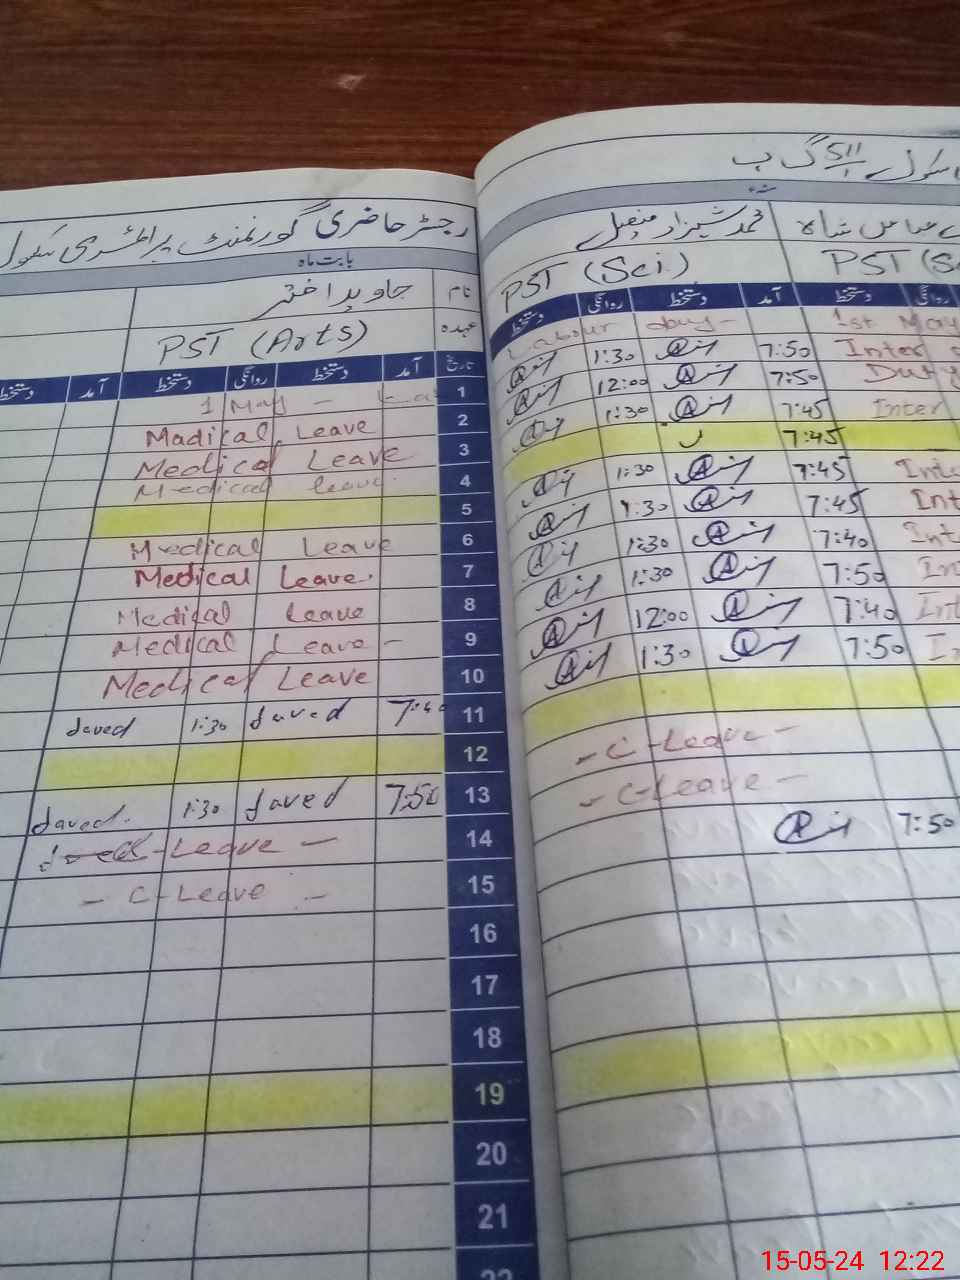 رجسٹر حاضری گورنمنٹ پرائمری سکول
بابت ماہ
نام جاوید اختر
عہدہ PST (Arts)
تاریخ آمد دستخط روانگی دستخط آمد دستخط
1 1 May -
2 Madical Leave
3 Medical Leave
4 Medical leave.
5
6 Medical Leave
7 Medical Leave.
8 Medical Leave
9 Medical Leave -
10 Medical Leave
11 Javed 1:30 Javed 7:40
12
13 Javed. 1:30 Javed 7:50
14 - Leave -
15 - C-Leave -
16
17
18
19
20
21
22
سکول 511 گ ب
محمد شہزاد فیصل
عباس شاہ
PST (Sci.) PST (S
دستخط روانگی دستخط آمد دستخط روانگی
Labour day - 1st May
1:30 7:50 Inter
12:00 7:50 Duty
1:30 7:45 Inter
7:45
1:30 7:45 Inte
1:30 7:45 Int
1:30 7:40 Int
1:30 7:50 In
12:00 7:40 Int
1:30 7:50 In
- C-Leave -
- C-Leave -
7:50
15-05-24 12:22